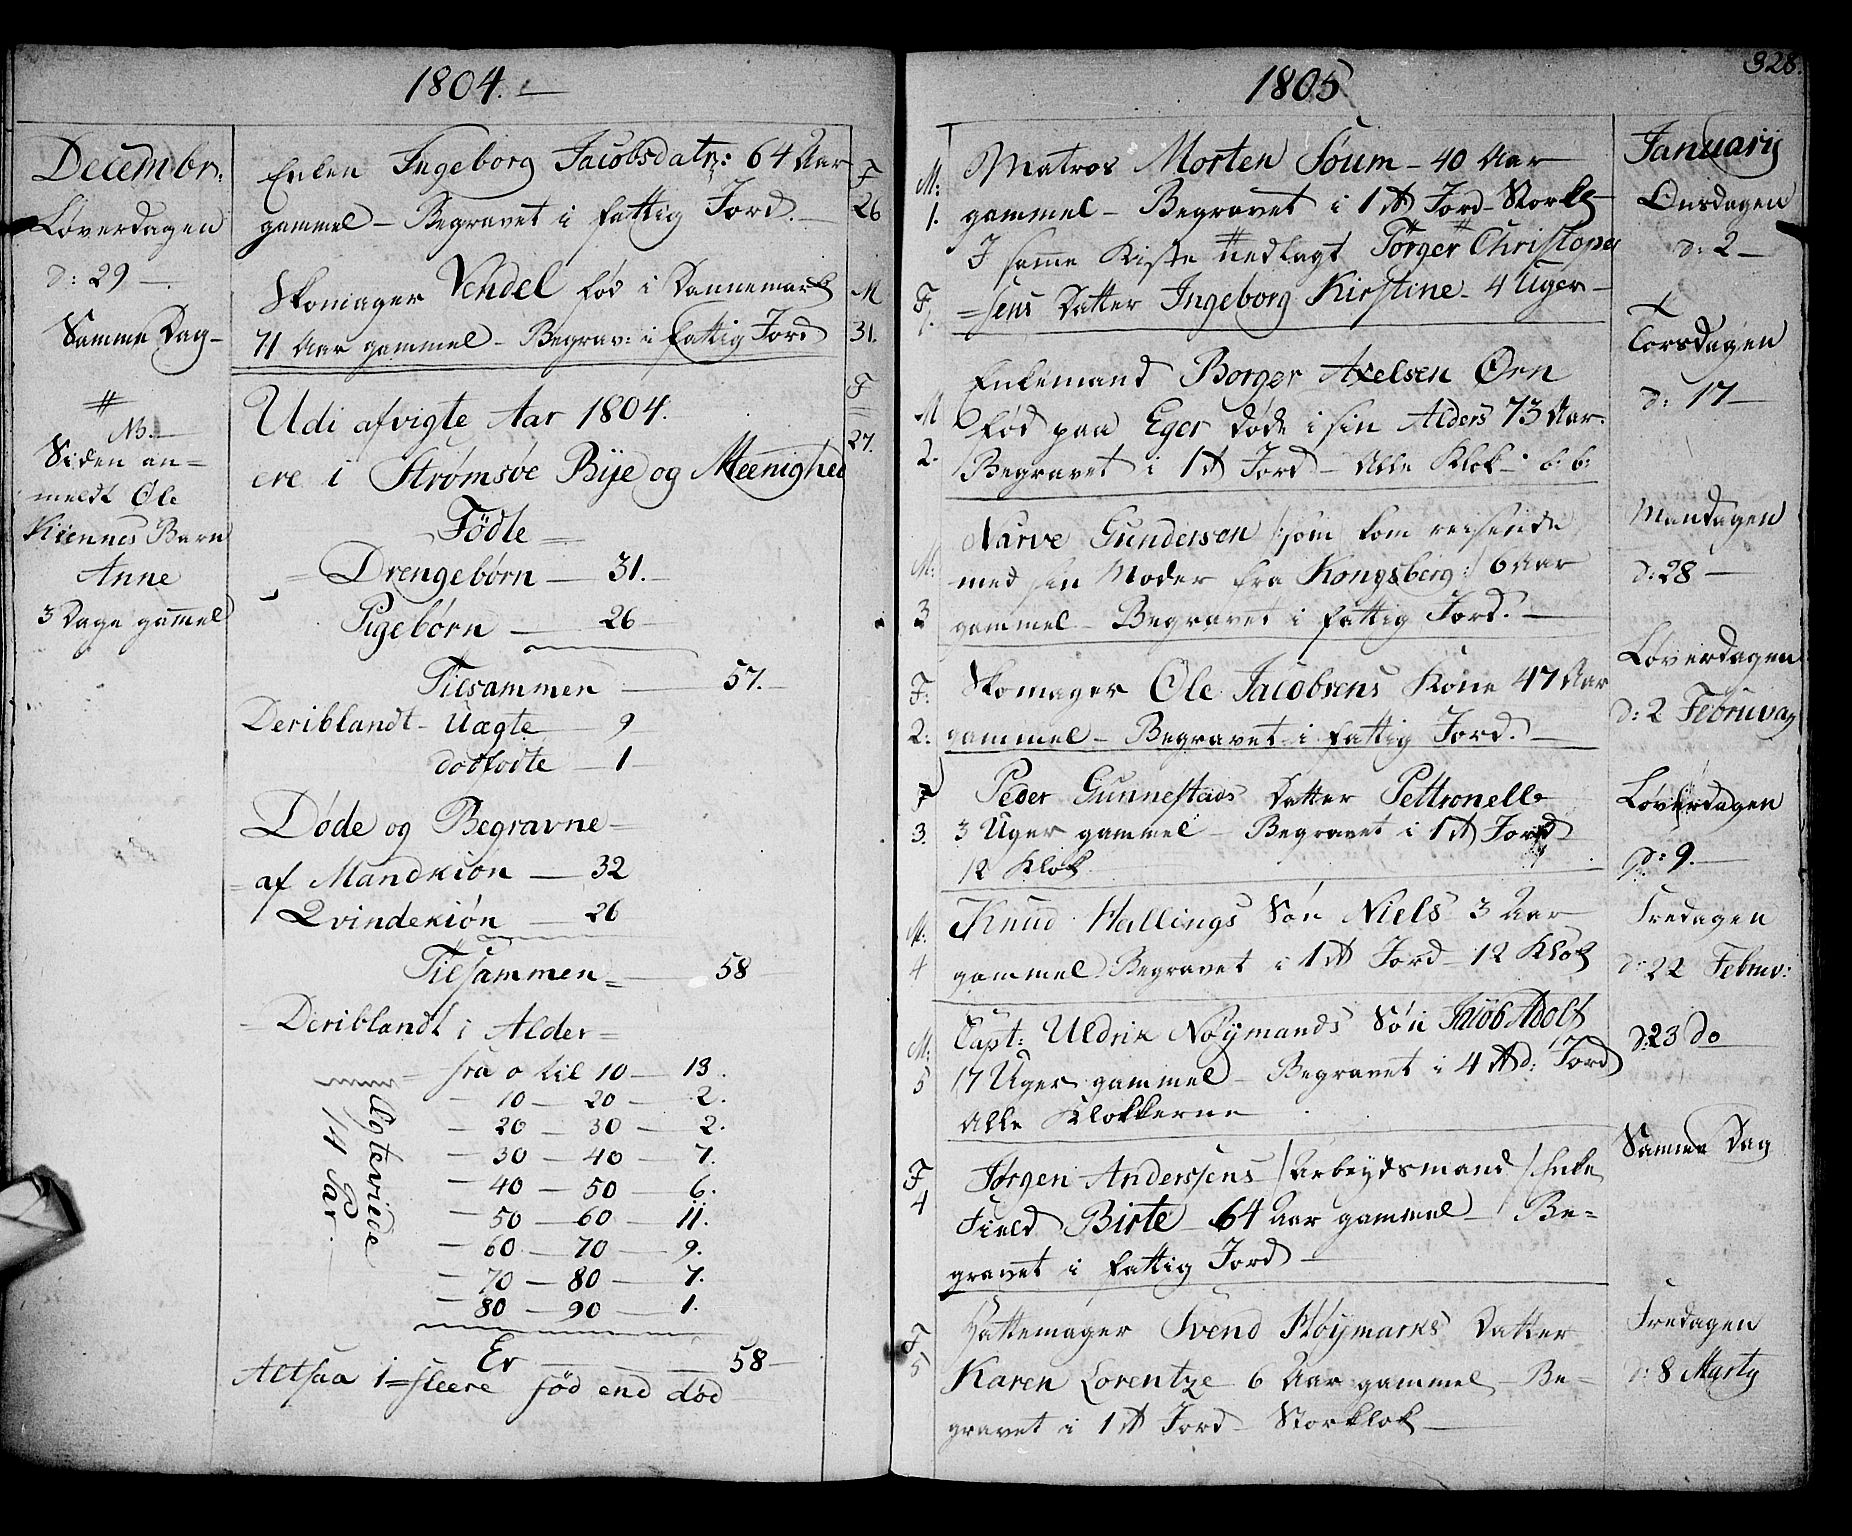 1804.
Decembr:
Løverdagen
d: 29
Samme Dag
#
NB.
Siden an=
meldt Ole
Kiennes Barn
Anne
3 Dage gammel
Enken Ingeborg Jacobsdatr: 64 Aar
gammel - Begravet i fattig Jord.
F
26
Skomager Vendel fød i Dannemark
71 Aar gammel - Begrav: i fattig Jord
M
31.
F
27.
Udi afvigte Aar 1804.
ere i Strømsøe Bye og Meenighed
Födte
Drengebørn - 31.
Pigebørn - 26
Tilsammen - 57.
Deriblandt - Uægte - 9
dødfødte - 1
Døde og Begravne
af Mandkiøn - 32
Qvindekiøn - 26
Tilsammen - 58
Deriblandt i Alder
fra 0 til 10 - 13.
10 - 20 - 2.
20 - 30 - 2.
30 - 40 - 7.
40 - 50 - 6.
50 - 60 - 11.
60 - 70 - 9.
70 - 80 - 7.
80 - 90 - 1.
Er - 58
Altsaa 1 fleere død end
14 Par
1805
328.
Januarij
Onsdagen
d: 2
M:
1.
Matros Morten Soum - 40 Aar
gammel - Begravet i 1 # Jord - Storkl
I samme Kiste nedlagt Torger Christophe
F
1.
=sens Datter Ingeborg Kirstine - 4 Uger
Torsdagen
d: 17
M
2.
Enkemand Borger Axelsen Ørn
fød paa Eger døde i sin Alders 73 Aar.
Begravet i 1 # Jord - Alle Klok - b: b:
Mandagen
d: 28
M:
3
Narve Gundersen /: som kom reisende
med sin Moder fra Kongsberg :/ 6 Aar
gammel - Begravet i fattig Jord.
Løverdagen
d: 2 Februar
F:
2:
Skomager Ole Jacobsens Kone 47 Aar
gammel - Begravet i fattig Jord.
Løverdagen
d: 9.
F
3.
Peder Gunnestads Datter Pettronelle
3 Uger gammel - Begravet i 1 # Jord
12 Klok
Fredagen
d: 22 Febru:
M:
4
Knud Hallings Søn Niels 3 Aar
gammel Begravet i 1 # Jord - 12 Klok
d: 23 do
M:
5
Capt: Uldrik Nøymands Søn Jacob Adolf
17 Uger gammel - Begravet i 4 #d: Jord
Alle Klokkerne
Samme Dag
F
4
Jørgen Anderssens / Arbeydsmand / Enke
Birte 64 Aar gammel - Be=
gravet i fattig Jord
Fredagen
d: 8 Marty
F
5
Hattemager Svend Høymarks Datter
Karen Lorentze 6 Aar gammel - Be=
gravet i 1 # Jord - Storklok